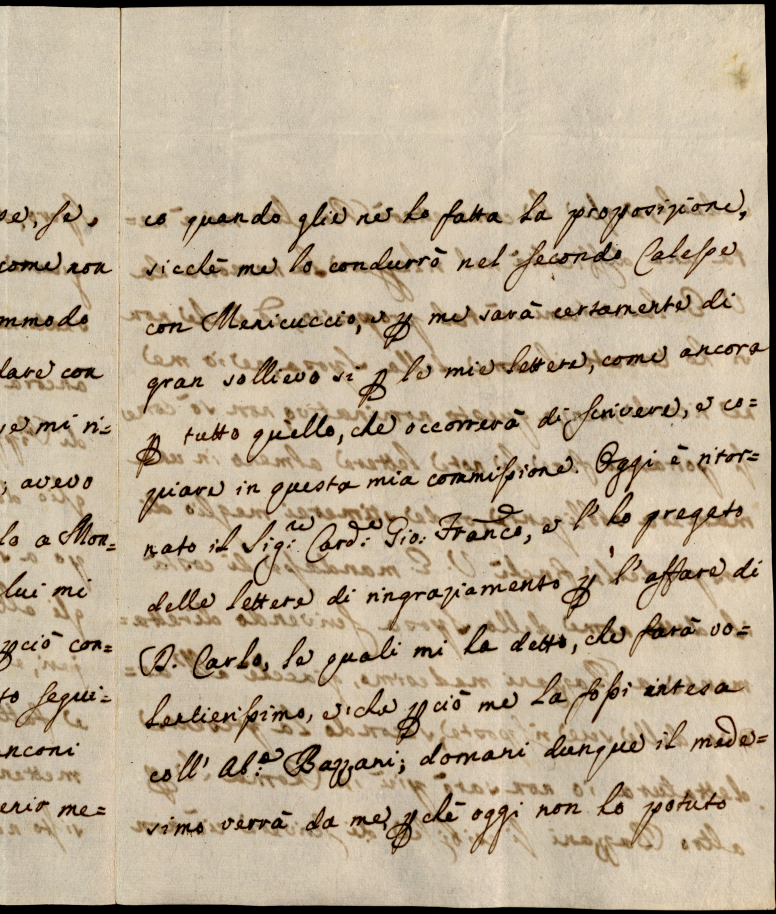 se, se,
come non
mmodo
dare con
se mi ri=
; avevo
lo a Mon=
lui mi
ꝑciò con=
to segui=
anconi
enir me=
co quando glie ne hò fatta la proposizione,
sicchè me lo condurrò nel secondo Calesse
con Menicuccio, e ꝑ me sarà certamente di
gran sollievo sì ꝑ le mie lettere, come ancora
ꝑ tutto quello, che occorrerà di scrivere, e co=
piare in questa mia commissione. Oggi è ritor=
nato il Sig.re Card.e Gio: Franc̃o, e l'hò pregato
delle lettere di ringraziamento ꝑ l'affare di
D. Carlo, le quali mi ha detto, che farà vo=
lentierissimo, e che ꝑciò me la fossi intesa
coll' Ab.e Bazzani; domani dunque il mede=
simo verrà da me, ꝑchè oggi non hò potuto